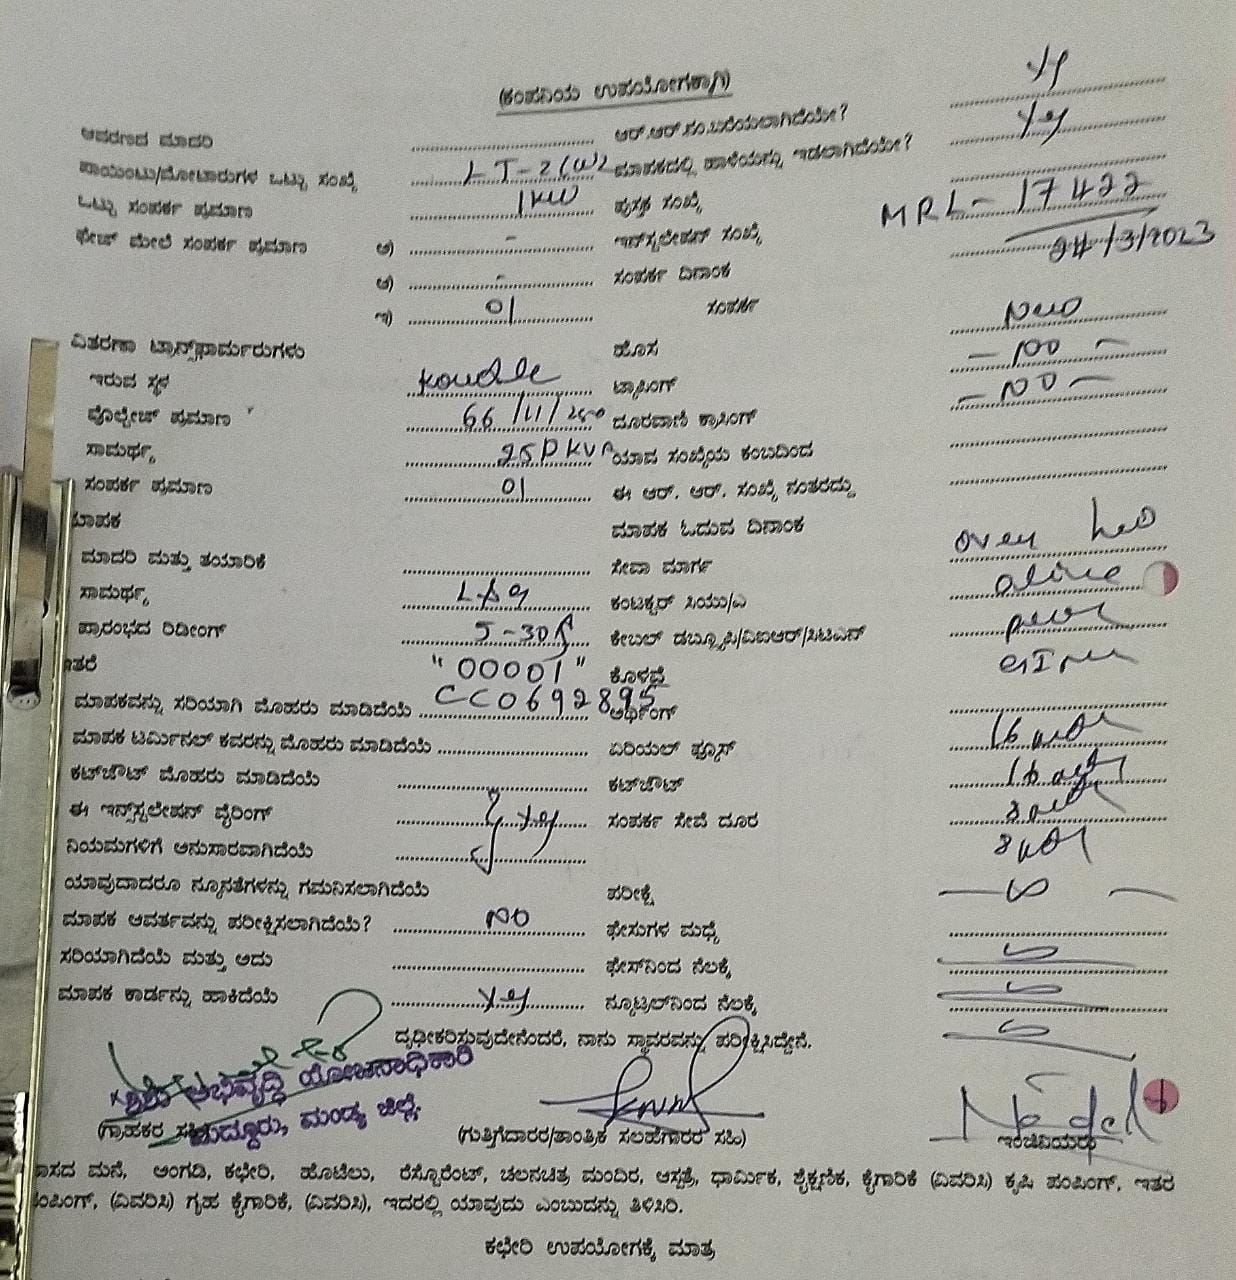 (ಕಂಪನಿಯ ಉಪಯೋಗಕ್ಕಾಗಿ)
ಆವರಣದ ಮಾದರಿ ಆರ್.ಆರ್.ಸಂ.ಬರೆಯಲಾಗಿದೆಯೇ?
ಪಾಯಿಂಟು/ಮೋಟಾರುಗಳ ಒಟ್ಟು ಸಂಖ್ಯೆ LT-2 ಮಾಪಕದಲ್ಲಿ ಹಾಳೆಯನ್ನು ಇಡಲಾಗಿದೆಯೇ? yes
ಒಟ್ಟು ಸಂಪರ್ಕ ಪ್ರಮಾಣ 1kw ಪುಸ್ತಕ ಸಂಖ್ಯೆ
ಫೇಜ್ ಮೇಲೆ ಸಂಪರ್ಕ ಪ್ರಮಾಣ ಅ) - ಇನ್‌ಸ್ಟಲೇಷನ್ ಸಂಖ್ಯೆ MRL-17422
ಆ) - ಸಂಪರ್ಕ ದಿನಾಂಕ 24/3/2023
ಇ) 01 ಸಂಪರ್ಕ
ವಿತರಣಾ ಟ್ರಾನ್ಸ್‌ಫಾರ್ಮರುಗಳು ಹೊಸ New
ಇರುವ ಸ್ಥಳ ಟ್ಯಾಪಿಂಗ್ - NO -
ವೊಲ್ಟೇಜ್ ಪ್ರಮಾಣ 66/11/ ದೂರವಾಣಿ ಕ್ರಾಸಿಂಗ್ - NO -
ಸಾಮರ್ಥ್ಯ KVA ಯಾವ ಸಂಖ್ಯೆಯ ಕಂಬದಿಂದ
ಸಂಪರ್ಕ ಪ್ರಮಾಣ 01 ಈ ಆರ್. ಆರ್. ಸಂಖ್ಯೆ ನಂತರದ್ದು
ಮಾಪಕ ಮಾಪಕ ಓದುವ ದಿನಾಂಕ
ಮಾದರಿ ಮತ್ತು ತಯಾರಿಕೆ ಸೇವಾ ಮಾರ್ಗ over
ಸಾಮರ್ಥ್ಯ ಕಂಟಕ್ಟರ್ ಸಿಯು/ಎ
ಪ್ರಾರಂಭದ ರಿಡೀಂಗ್ 5-30A ಕೇಬಲ್ ಡಬ್ಲ್ಯೂಪಿ/ವಿಐಆರ್/ಸಿಟಿಎಸ್
ಇತರೆ "00001" ಕೊಳವೆ
ಮಾಪಕವನ್ನು ಸರಿಯಾಗಿ ಮೊಹರು ಮಾಡಿದೆಯೆ CC0692895 ಅರ್ಥಿಂಗ್
ಮಾಪಕ ಟರ್ಮಿನಲ್ ಕವರನ್ನು ಮೊಹರು ಮಾಡಿದೆಯೆ ಏರಿಯಲ್ ಫ್ಯೂಸ್
ಕಟ್‌ಔಟ್ ಮೊಹರು ಮಾಡಿದೆಯೆ ಕಟ್‌ಔಟ್
ಈ ಇನ್ಸ್‌ಸ್ಟಲೇಷನ್ ವೈರಿಂಗ್ yes ಸಂಪರ್ಕ ಸೇವೆ ದೂರ
ನಿಯಮಗಳಿಗೆ ಅನುಸಾರವಾಗಿದೆಯೆ
ಯಾವುದಾದರೂ ನ್ಯೂನತೆಗಳನ್ನು ಗಮನಿಸಲಾಗಿದೆಯೆ ಪರೀಕ್ಷೆ
ಮಾಪಕ ಆವರ್ತವನ್ನು ಪರೀಕ್ಷಿಸಲಾಗಿದೆಯೆ? NO ಫೇಸುಗಳ ಮಧ್ಯೆ
ಸರಿಯಾಗಿದೆಯೆ ಮತ್ತು ಅದು ಫೇಸ್‌ನಿಂದ ನೆಲಕ್ಕೆ
ಮಾಪಕ ಕಾರ್ಡನ್ನು ಹಾಕಿದೆಯೆ yes ನ್ಯೂಟ್ರಲ್‌ನಿಂದ ನೆಲಕ್ಕೆ
ದೃಢೀಕರಿಸುವುದೇನೆಂದರೆ, ನಾನು ಸ್ಥಾವರವನ್ನು ಪರೀಕ್ಷಿಸಿದ್ದೇನೆ.
ಶಿಶು ಅಭಿವೃದ್ಧಿ ಯೋಜನಾಧಿಕಾರಿ
ಮದ್ದೂರು, ಮಂಡ್ಯ ಜಿಲ್ಲೆ.
(ಗ್ರಾಹಕರ ಸಹಿ) (ಗುತ್ತಿಗೆದಾರರ/ತಾಂತ್ರಿಕ ಸಲಹೆಗಾರರ ಸಹಿ) ಇಂಜಿನಿಯರು
ವಾಸದ ಮನೆ, ಅಂಗಡಿ, ಕಛೇರಿ, ಹೊಟೆಲು, ರೆಸ್ಟೊರೆಂಟ್, ಚಲನಚಿತ್ರ ಮಂದಿರ, ಆಸ್ಪತ್ರೆ, ಧಾರ್ಮಿಕ, ಶೈಕ್ಷಣಿಕ, ಕೈಗಾರಿಕೆ (ವಿವರಿಸಿ) ಕೃಷಿ ಪಂಪಿಂಗ್, ಇತರ
ಪಂಪಿಂಗ್, (ವಿವರಿಸಿ) ಗೃಹ ಕೈಗಾರಿಕೆ, (ವಿವರಿಸಿ), ಇದರಲ್ಲಿ ಯಾವುದು ಎಂಬುದನ್ನು ತಿಳಿಸಿರಿ.
ಕಛೇರಿ ಉಪಯೋಗಕ್ಕೆ ಮಾತ್ರ